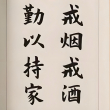 戒烟戒酒
勤以持家